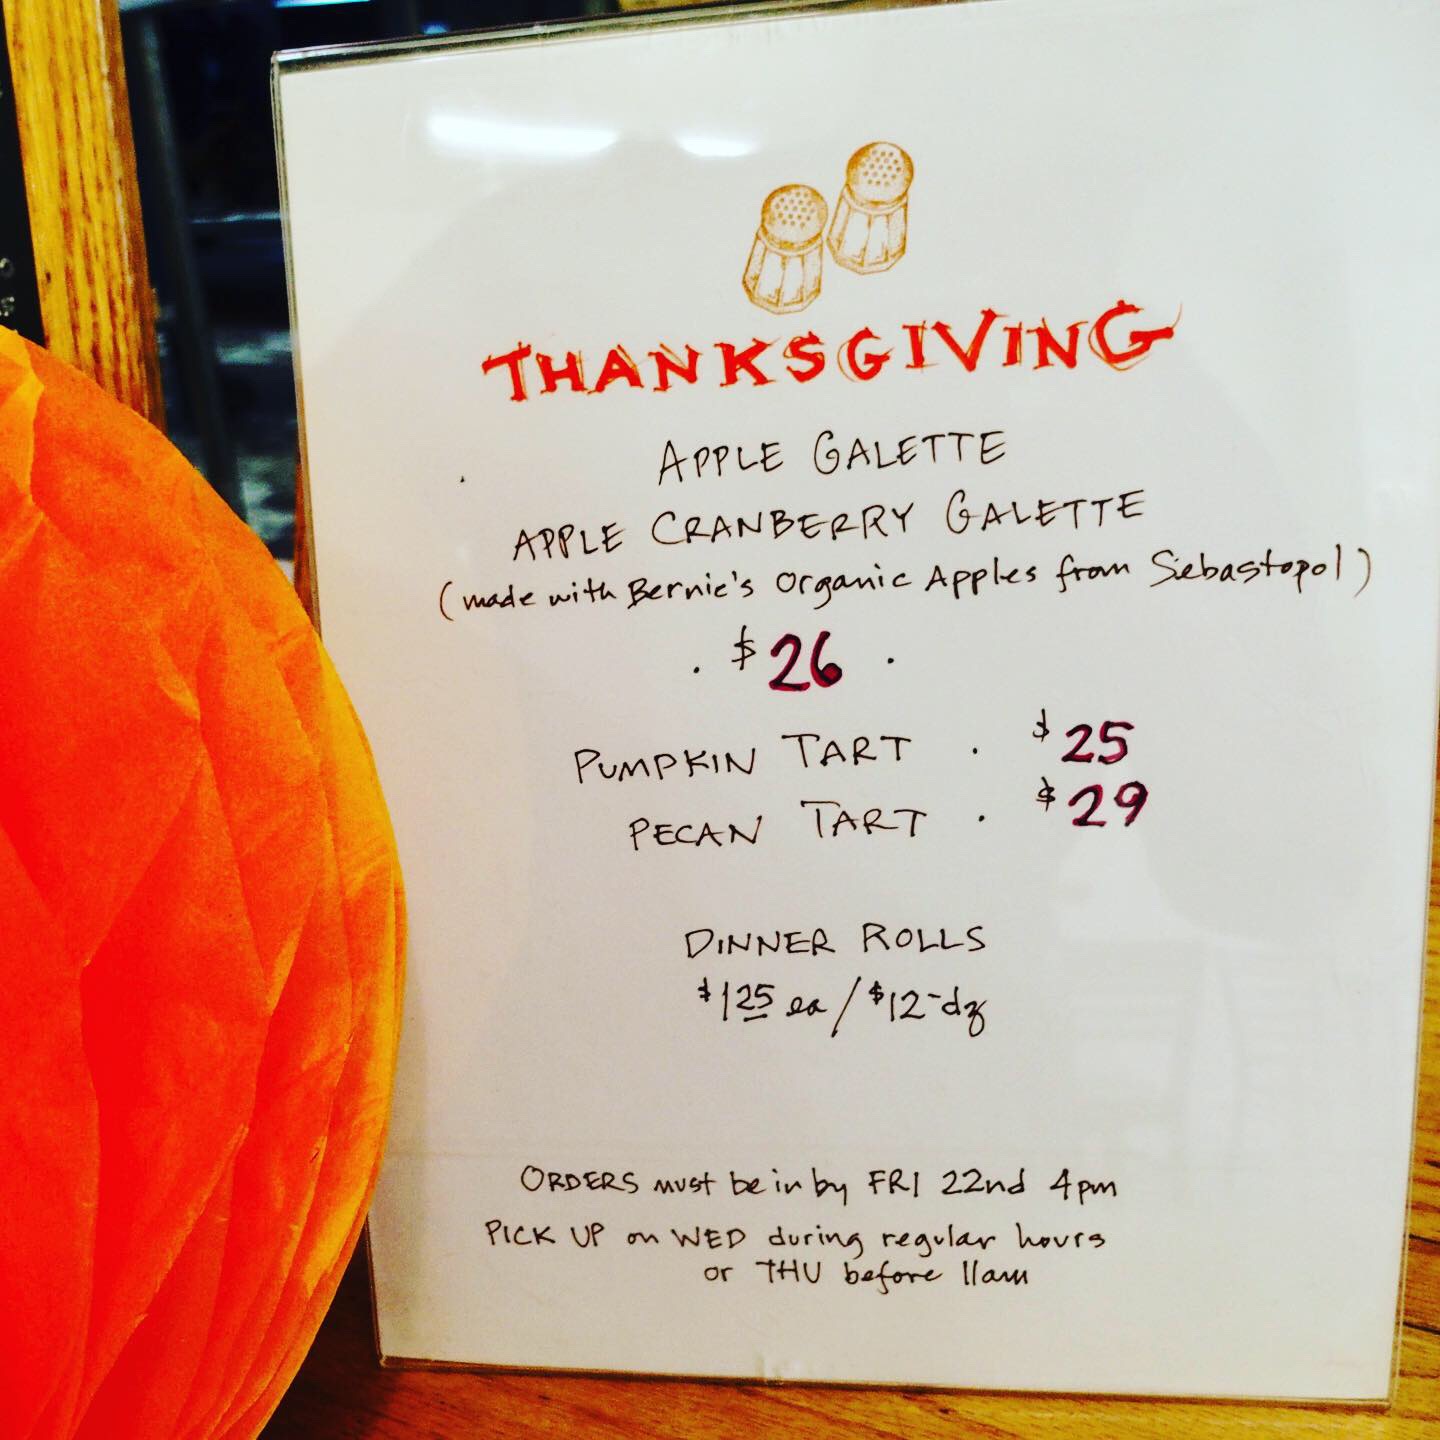 THANKSGIVING
APPLE GALETTE
APPLE CRANBERRY GALETTE
(made with Bernie's Organic Apples from Sebastopol)
. $26 .
PUMPKIN TART . $25
PECAN TART . $29
DINNER ROLLS
$1.25 ea / $12-dz
ORDERS must be in by FRI 22nd 4pm
PICK UP on WED during regular hours
or THU before 11am